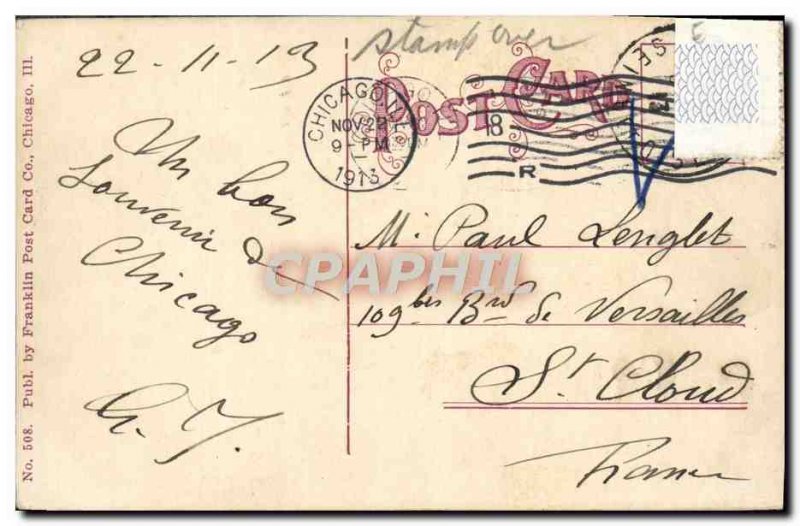 No. 508. Publ. by Franklin Post Card Co., Chicago, Ill.
22-11-13
Un bon
Souvenir de
Chicago
stamp over
POST CARD
CHICAGO, ILL
NOV 22
9 - PM
1913
8
R
E
CPAPHIL
Mr Paul Lenglet
109 bis Bvd de Versailles
St Cloud
France